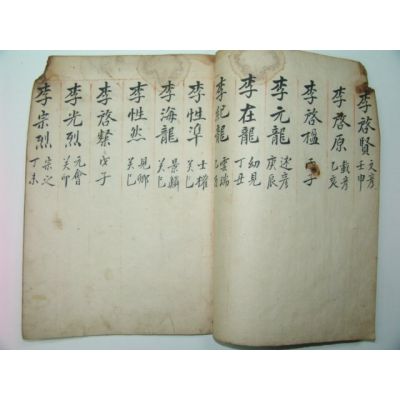 李啓賢 文彦 壬申
李啓原 載彦 乙亥
李啓樞 丙子
李元龍 遂彦 庚辰
李在龍 幼見 丁丑
李紀龍 雲瑞
李性準 士權 癸巳
李海龍 景鱗 癸巳
李性然 見卿 癸巳
李啓繁 戊子
李光烈 元會 癸卯
李宗烈 宗之 丁未